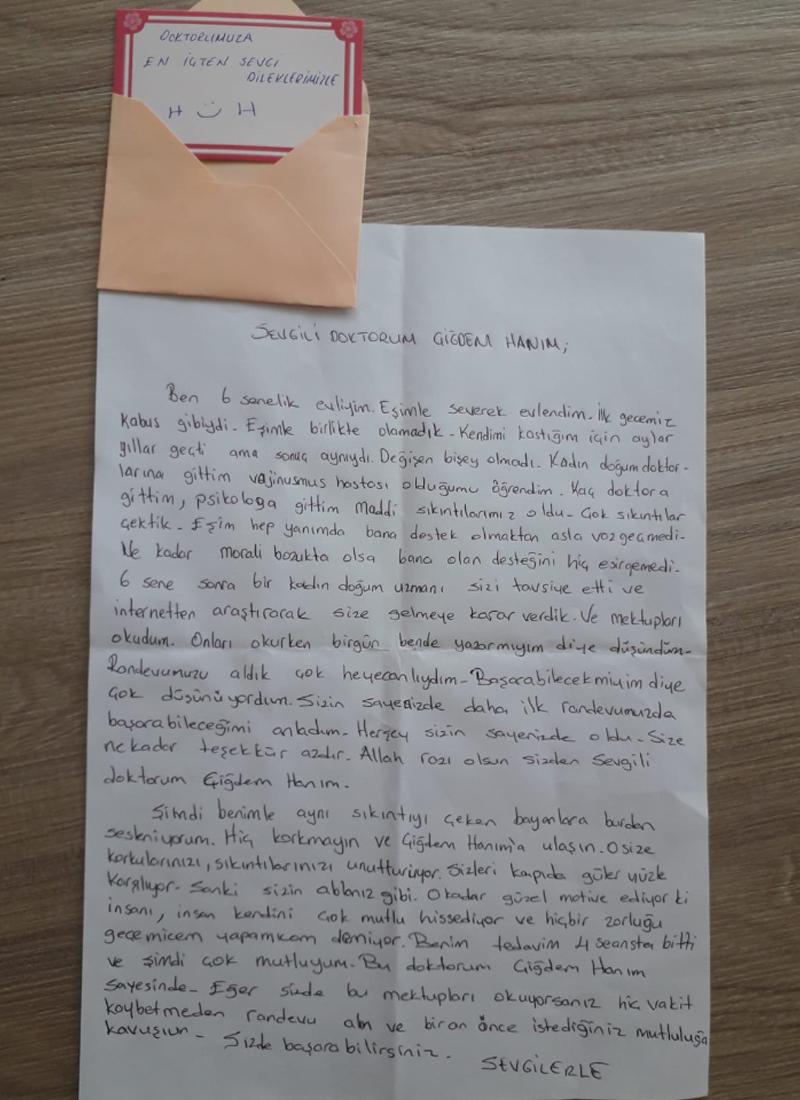 DOKTORUMUZA
EN İÇTEN SEVGİ
DİLEKLERİMİZLE
H Ü H
SEVGİLİ DOKTORUM ÇİĞDEM HANIM;
Ben 6 senelik evliyim. Eşimle severek evlendim. İlk gecemiz
Kabus gibiydi. Eşimle birlikte olamadık. Kendimi kastığım için aylar
yıllar geçti ama sonuç aynıydı. Değişen bişey olmadı. Kadın doğum doktor-
larına gittim vajinusmus hastası olduğumu öğrendim. Kaç doktora
gittim, psikologa gittim Maddi sıkıntılarımız oldu. Çok sıkıntılar
çektik. Eşim hep yanımda bana destek olmaktan asla vazgeçmedi.
Ne kadar morali bozukta olsa bana olan desteğini hiç esirgemedi.
6 sene sonra bir kadın doğum uzmanı sizi tavsiye etti ve
internetten araştırarak size gelmeye karar verdik. Ve mektupları
okudum. Onları okurken birgün bende yazarmıyım diye düşündüm.
Randevumuzu aldık çok heyecanlıydım. Başarabilecekmiyim diye
çok düşünüyordum. Sizin sayenizde daha ilk randevumuzda
başarabileceğimi anladım. Herşey sizin sayenizde oldu. Size
ne kadar teşekkür azdır. Allah razı olsun sizden Sevgili
doktorum Çiğdem Hanım.
Şimdi benimle aynı sıkıntıyı çeken bayanlara burdan
sesleniyorum. Hiç korkmayın ve Çiğdem Hanım'a ulaşın. O size
korkularınızı, sıkıntılarınızı unutturuyor. Sizleri kapıda güler yüzle
Karşılıyor. Sanki sizin ablanız gibi. Okadar güzel motive ediyor ki
insanı, insan kendini çok mutlu hissediyor ve hiçbir zorluğu
geçemicem yapamıcam demiyor. Benim tedavim 4 seansta bitti
ve şimdi çok mutluyum. Bu doktorum Çiğdem Hanım
sayesinde. Eğer sizde bu mektupları okuyorsanız hiç vakit
kaybetmeden randevu alın ve bir an önce istediğiniz mutluluğa
kavuşun. Sizde başarabilirsiniz.
SEVGİLERLE